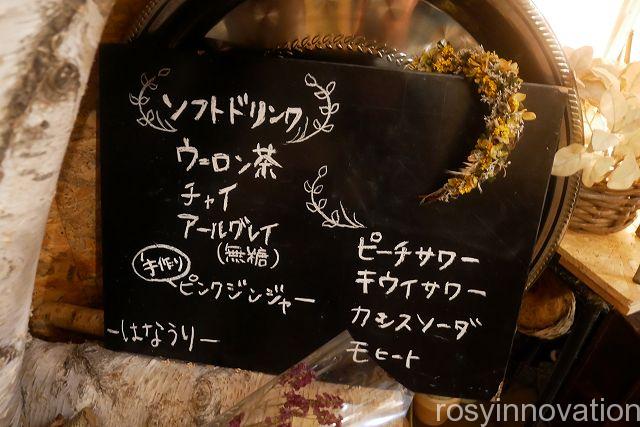 ソフトドリンク
ウーロン茶
チャイ
アールグレイ
(無糖)
手作り
ピンクジンジャー
-はなうり-
ピーチサワー
キウイサワー
カシスソーダ
モヒート
rosyinnovation